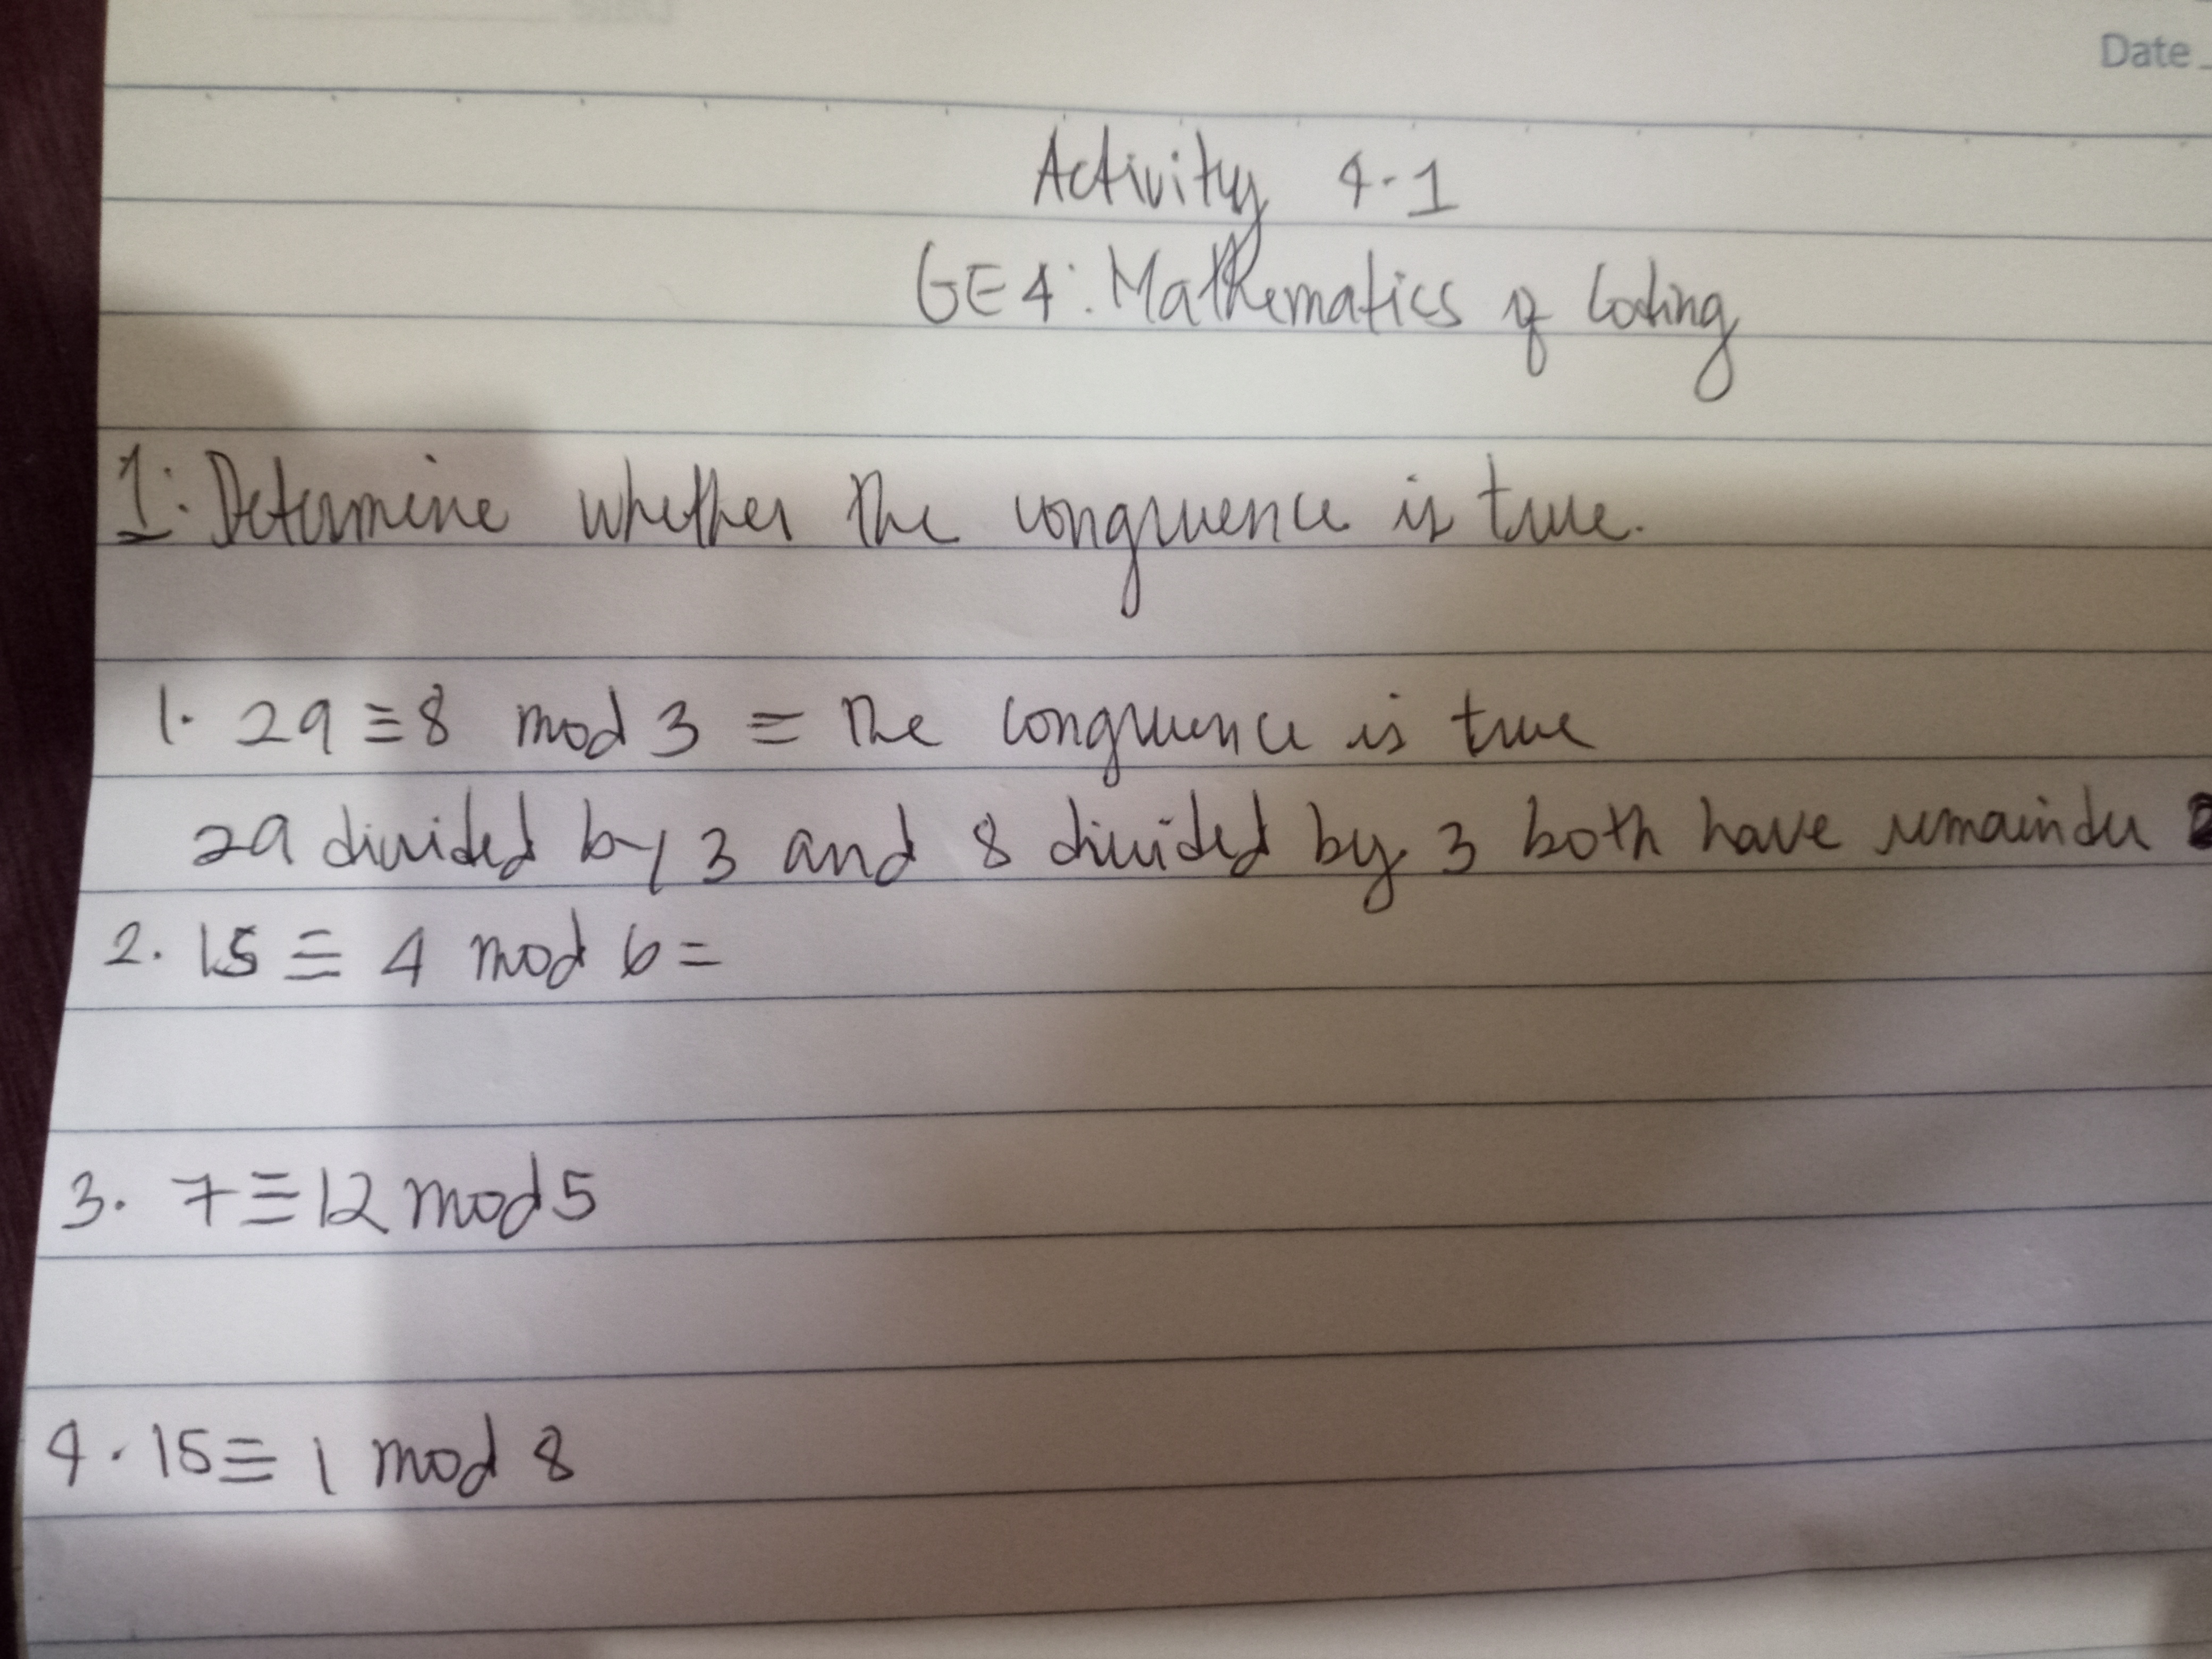 Date
Activity 4.1
GE4: Mathematics of Coding
1. Determine whether the congruence is true.
1. 29 ≡ 8 mod 3 = The congruence is true
29 divided by 3 and 8 divided by 3 both have remainder 2
2. 15 ≡ 4 mod 6 =
3. 7 ≡ 12 mod 5
4. 15 ≡ 1 mod 8